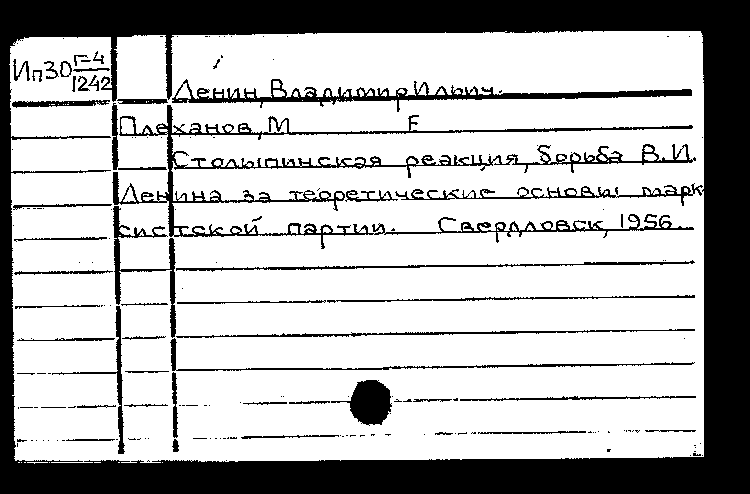 Ип30 Г-4/1242
Ленин, Владимир Ильич.
Плеханов, М Е
Столыпинская реакция, борьба В.И.
Ленина за теоретические основы марк
систской партии. Свердловск, 1956.